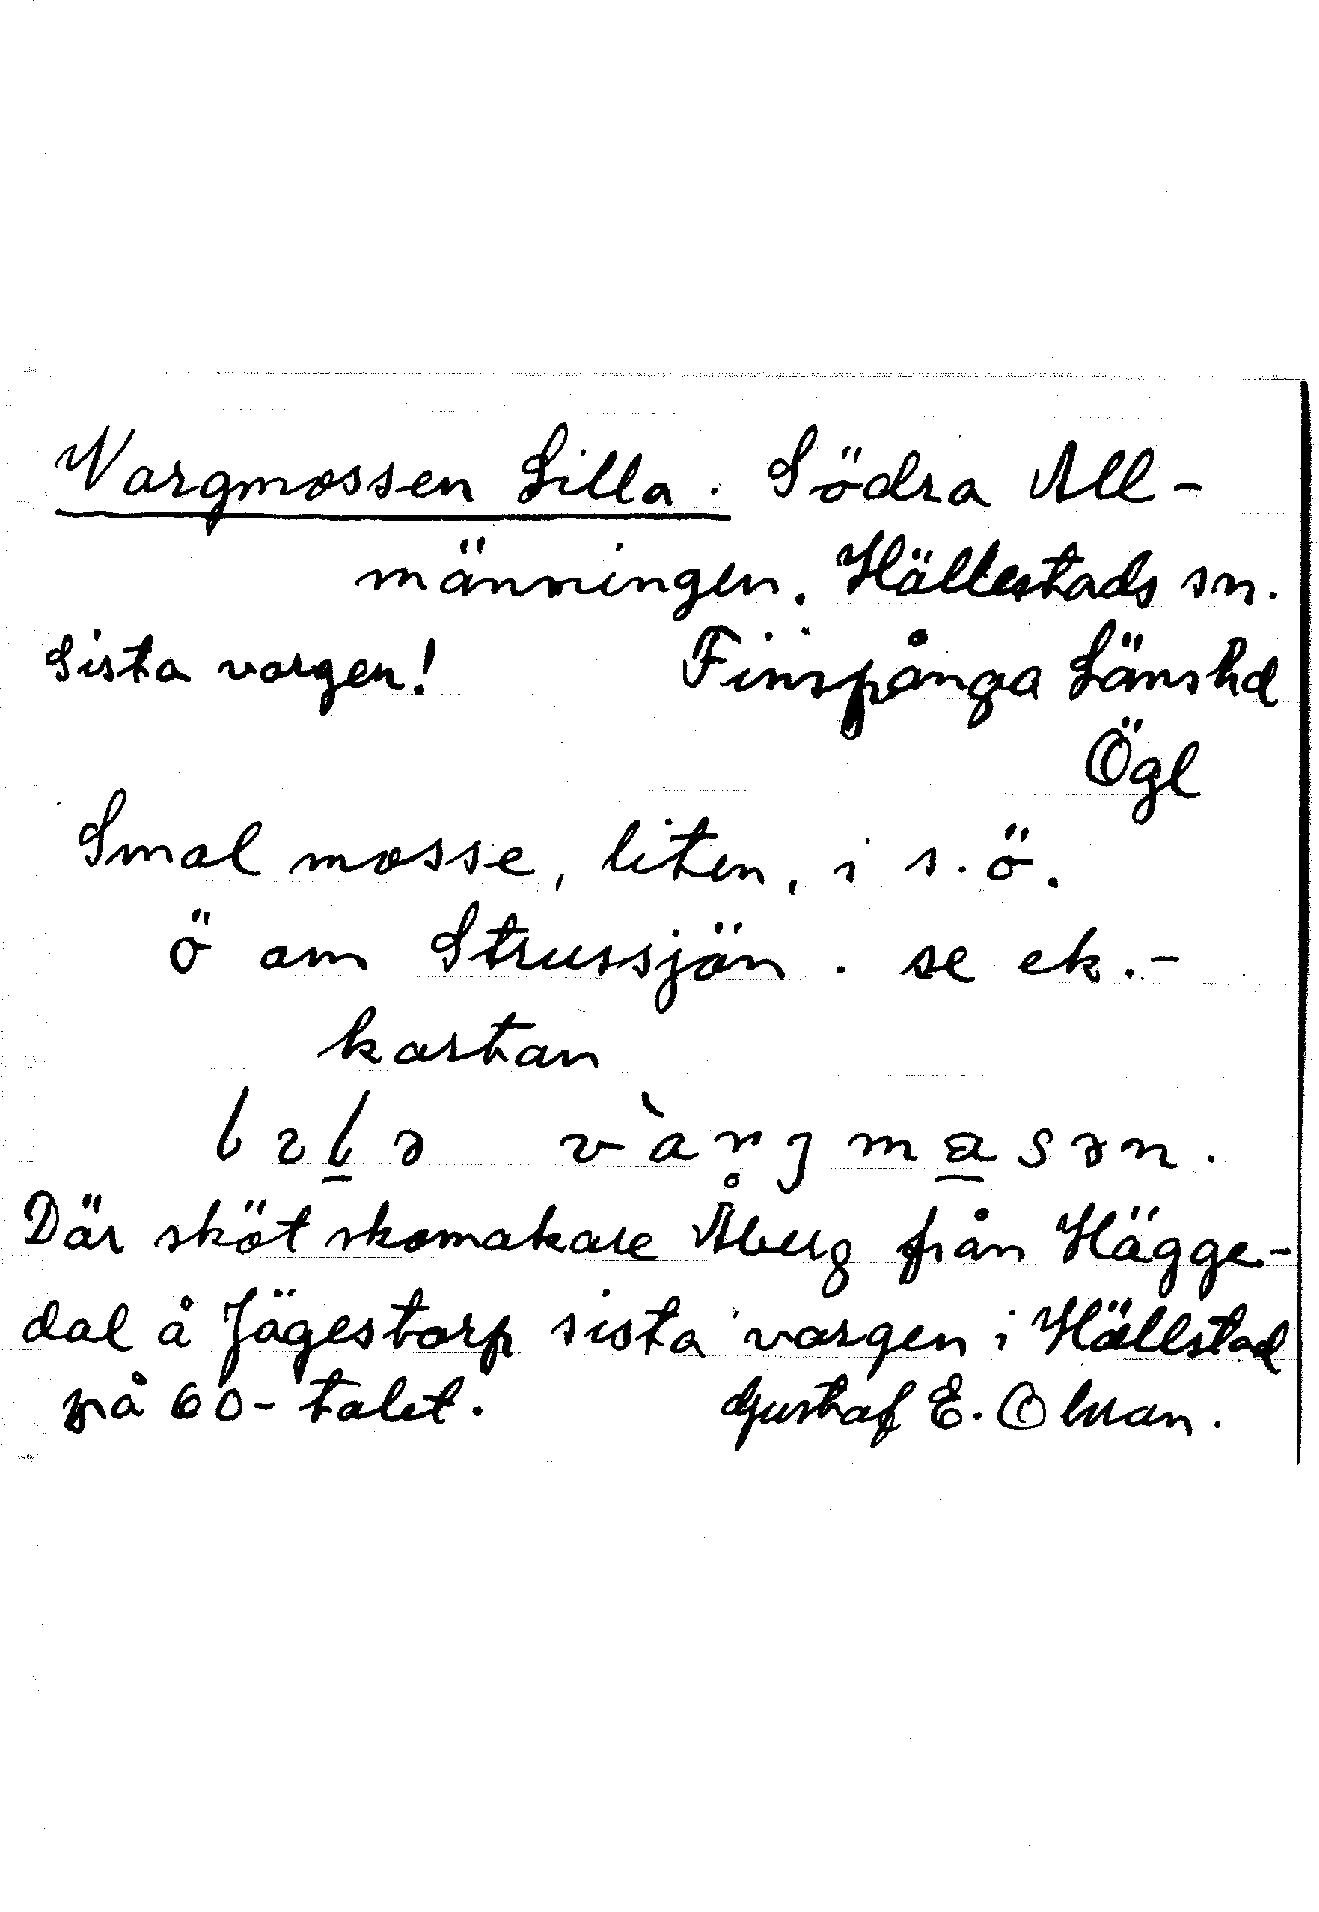 Vargmossen Lilla. Södra All-
männingen. Hällestads sn.
Sista vargen! Finspånga Länshd
Ögl
Smal mosse, liten, i s.ö.
ö om Strussjön. se ek.-
kartan
vàrgmasən.
Där sköt skomakare Åberg från Hägge-
dal å Jägestorp sista vargen i Hällstad
på 60-talet. Gustaf E. Olman.